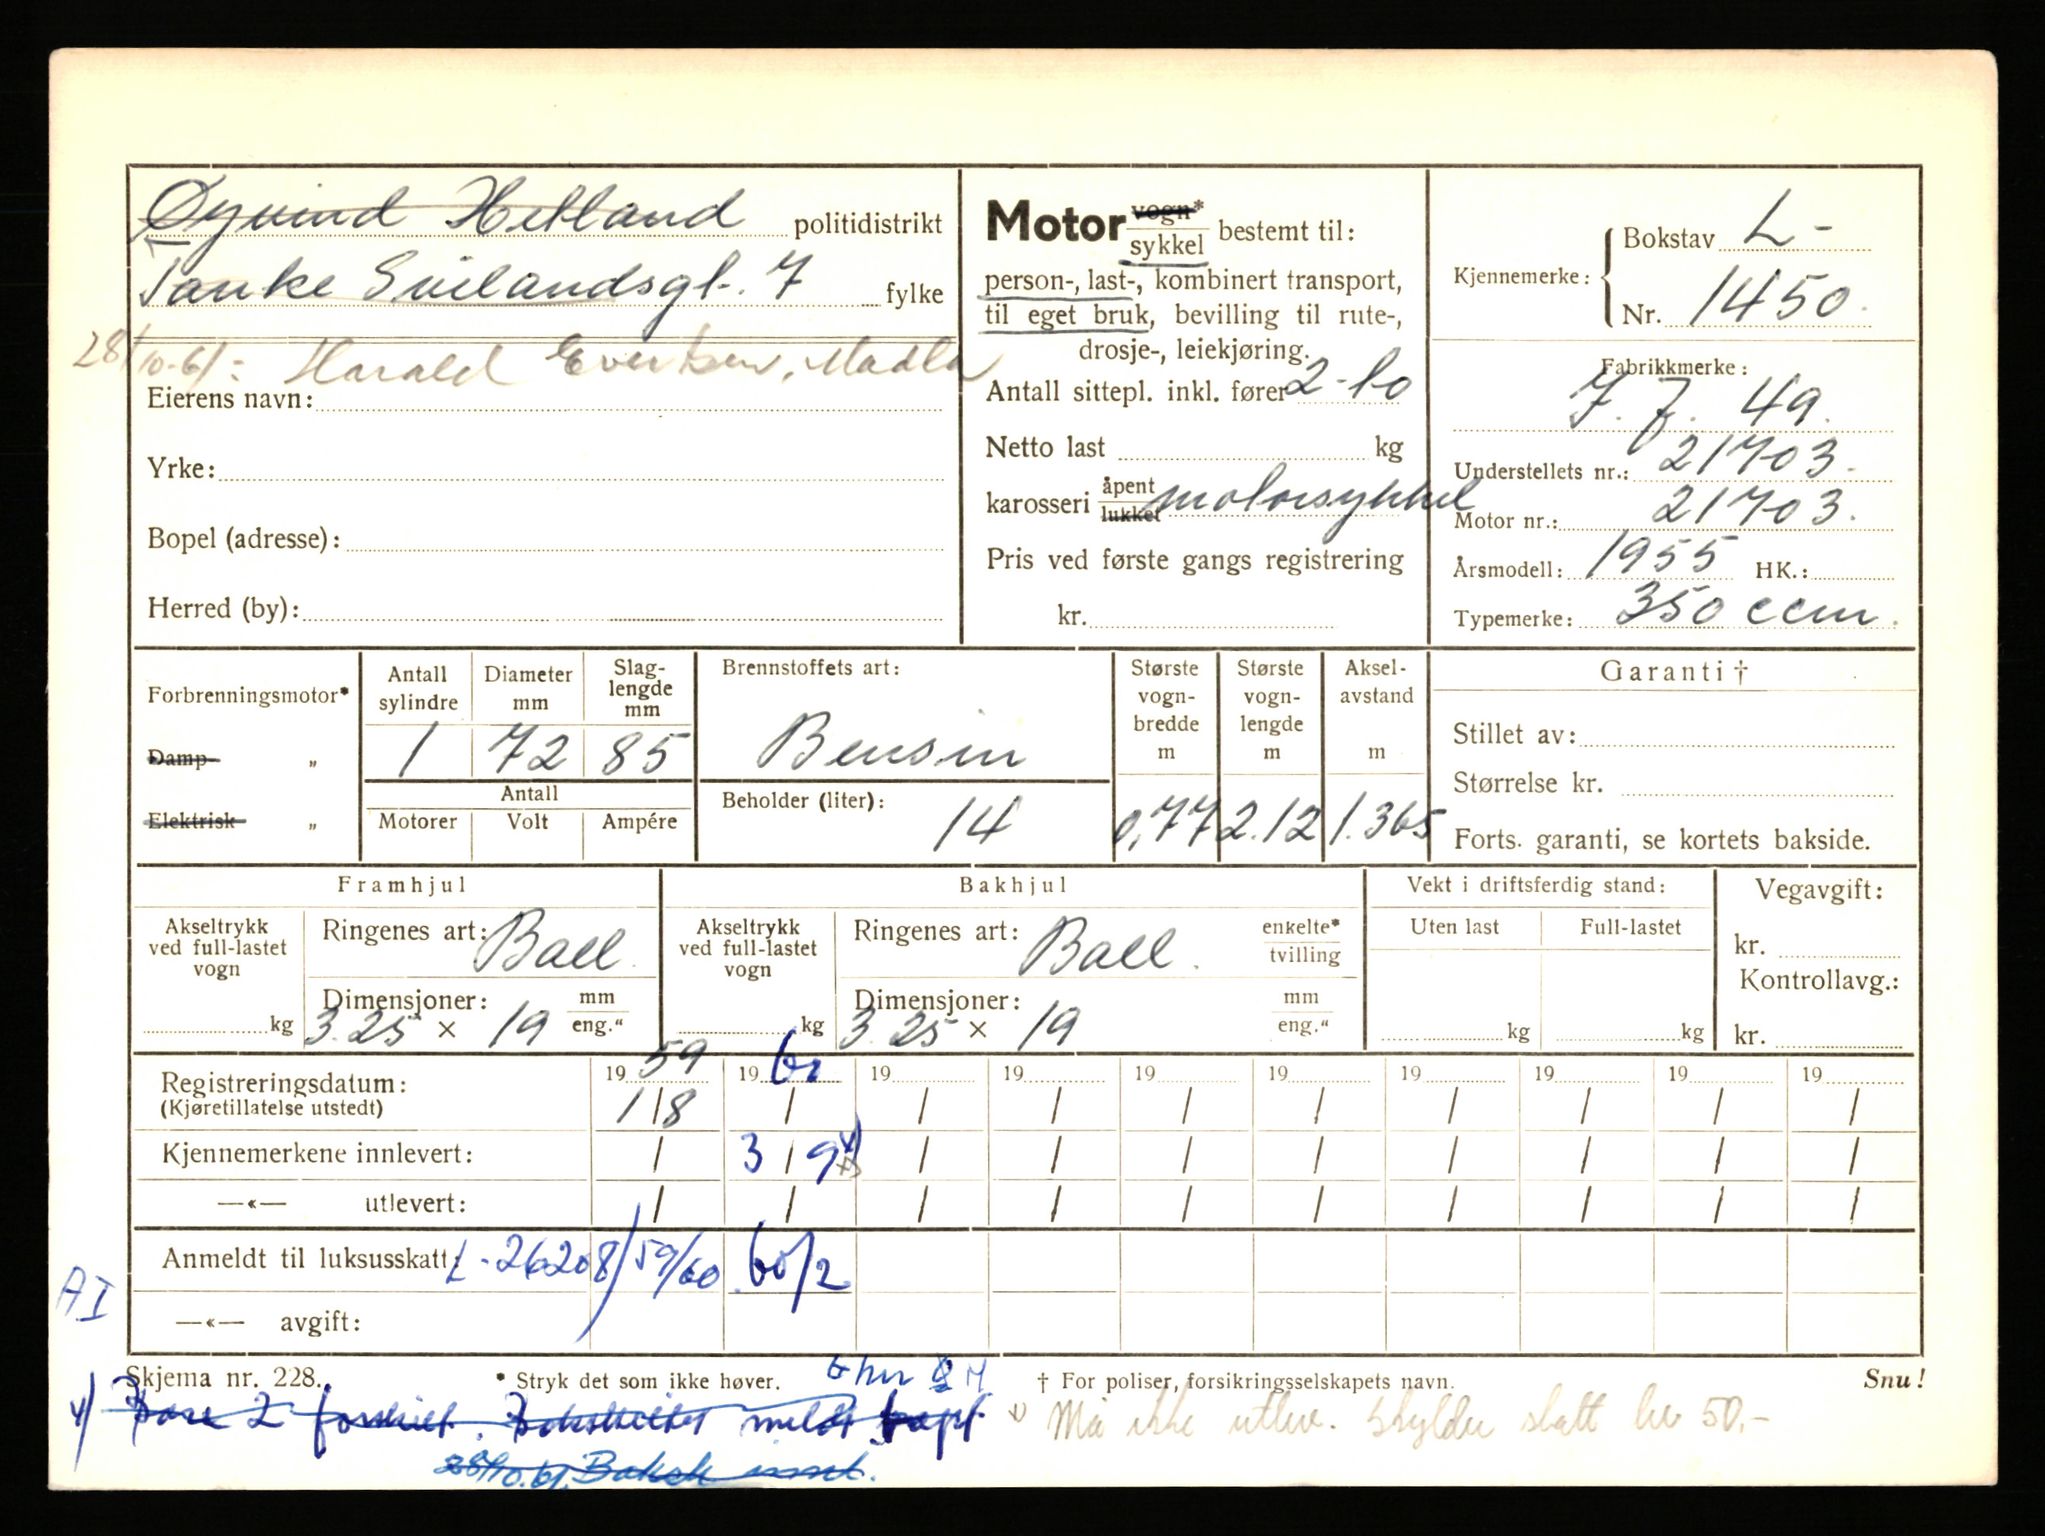 Øyvind Hetland politidistrikt
Tanke Svilandsgt. 7 fylke
28/10-61: Harald Evertsen, Madla
Eierens navn:
Yrke:
Bopel (adresse):
Herred (by):
Motor vogn* / sykkel bestemt til:
person-, last-, kombinert transport,
til eget bruk, bevilling til rute-,
drosje-, leiekjøring.
Antall sittepl. inkl. fører 2-to
Netto last kg
karosseri åpent / lukket motorsykkel
Pris ved første gangs registrering
kr.
Kjennemerke: Bokstav L-
Nr. 1450.
Fabrikkmerke:
49.
Understellets nr.: 21703.
Motor nr.: 21703.
Årsmodell: 1955 HK.:
Typemerke: 350 ccm.
Forbrenningsmotor*
Damp „
Elektrisk „
Antall sylindre 1
Diameter mm 72
Slag-lengde mm 85
Antall
Motorer Volt Ampére
Brennstoffets art:
Bensin
Beholder (liter):
14
Største vogn-bredde m 0,77
Største vogn-lengde m 2.12
Aksel-avstand m 1.365
Garanti †
Stillet av:
Størrelse kr.
Forts. garanti, se kortets bakside.
Framhjul
Akseltrykk ved full-lastet vogn
kg
Ringenes art: Ball.
Dimensjoner: mm / eng."
3.25 × 19
Bakhjul
Akseltrykk ved full-lastet vogn
kg
Ringenes art: Ball. enkelte* / tvilling
Dimensjoner: mm / eng."
3.25 × 19
Vekt i driftsferdig stand:
Uten last Full-lastet
kg kg
Vegavgift:
kr.
Kontrollavg.:
kr.
Registreringsdatum: 19 59 19 60 19 19 19 19 19 19 19 19
(Kjøretillatelse utstedt) 1/8 / / / / / / / / /
Kjennemerkene innlevert: / 3/9 / / / / / / / /
—«— utlevert: / / / / / / / / / /
Anmeldt til luksusskatt: L-26208/59/60 60/2
AI
—«— avgift:
Skjema nr. 228.
* Stryk det som ikke høver.
† For poliser, forsikringsselskapets navn.
Snu!
Bare 2 meldt
28/10.61. Baksk innl.
Må ikke utlev. Skylder skatt kr 50,-